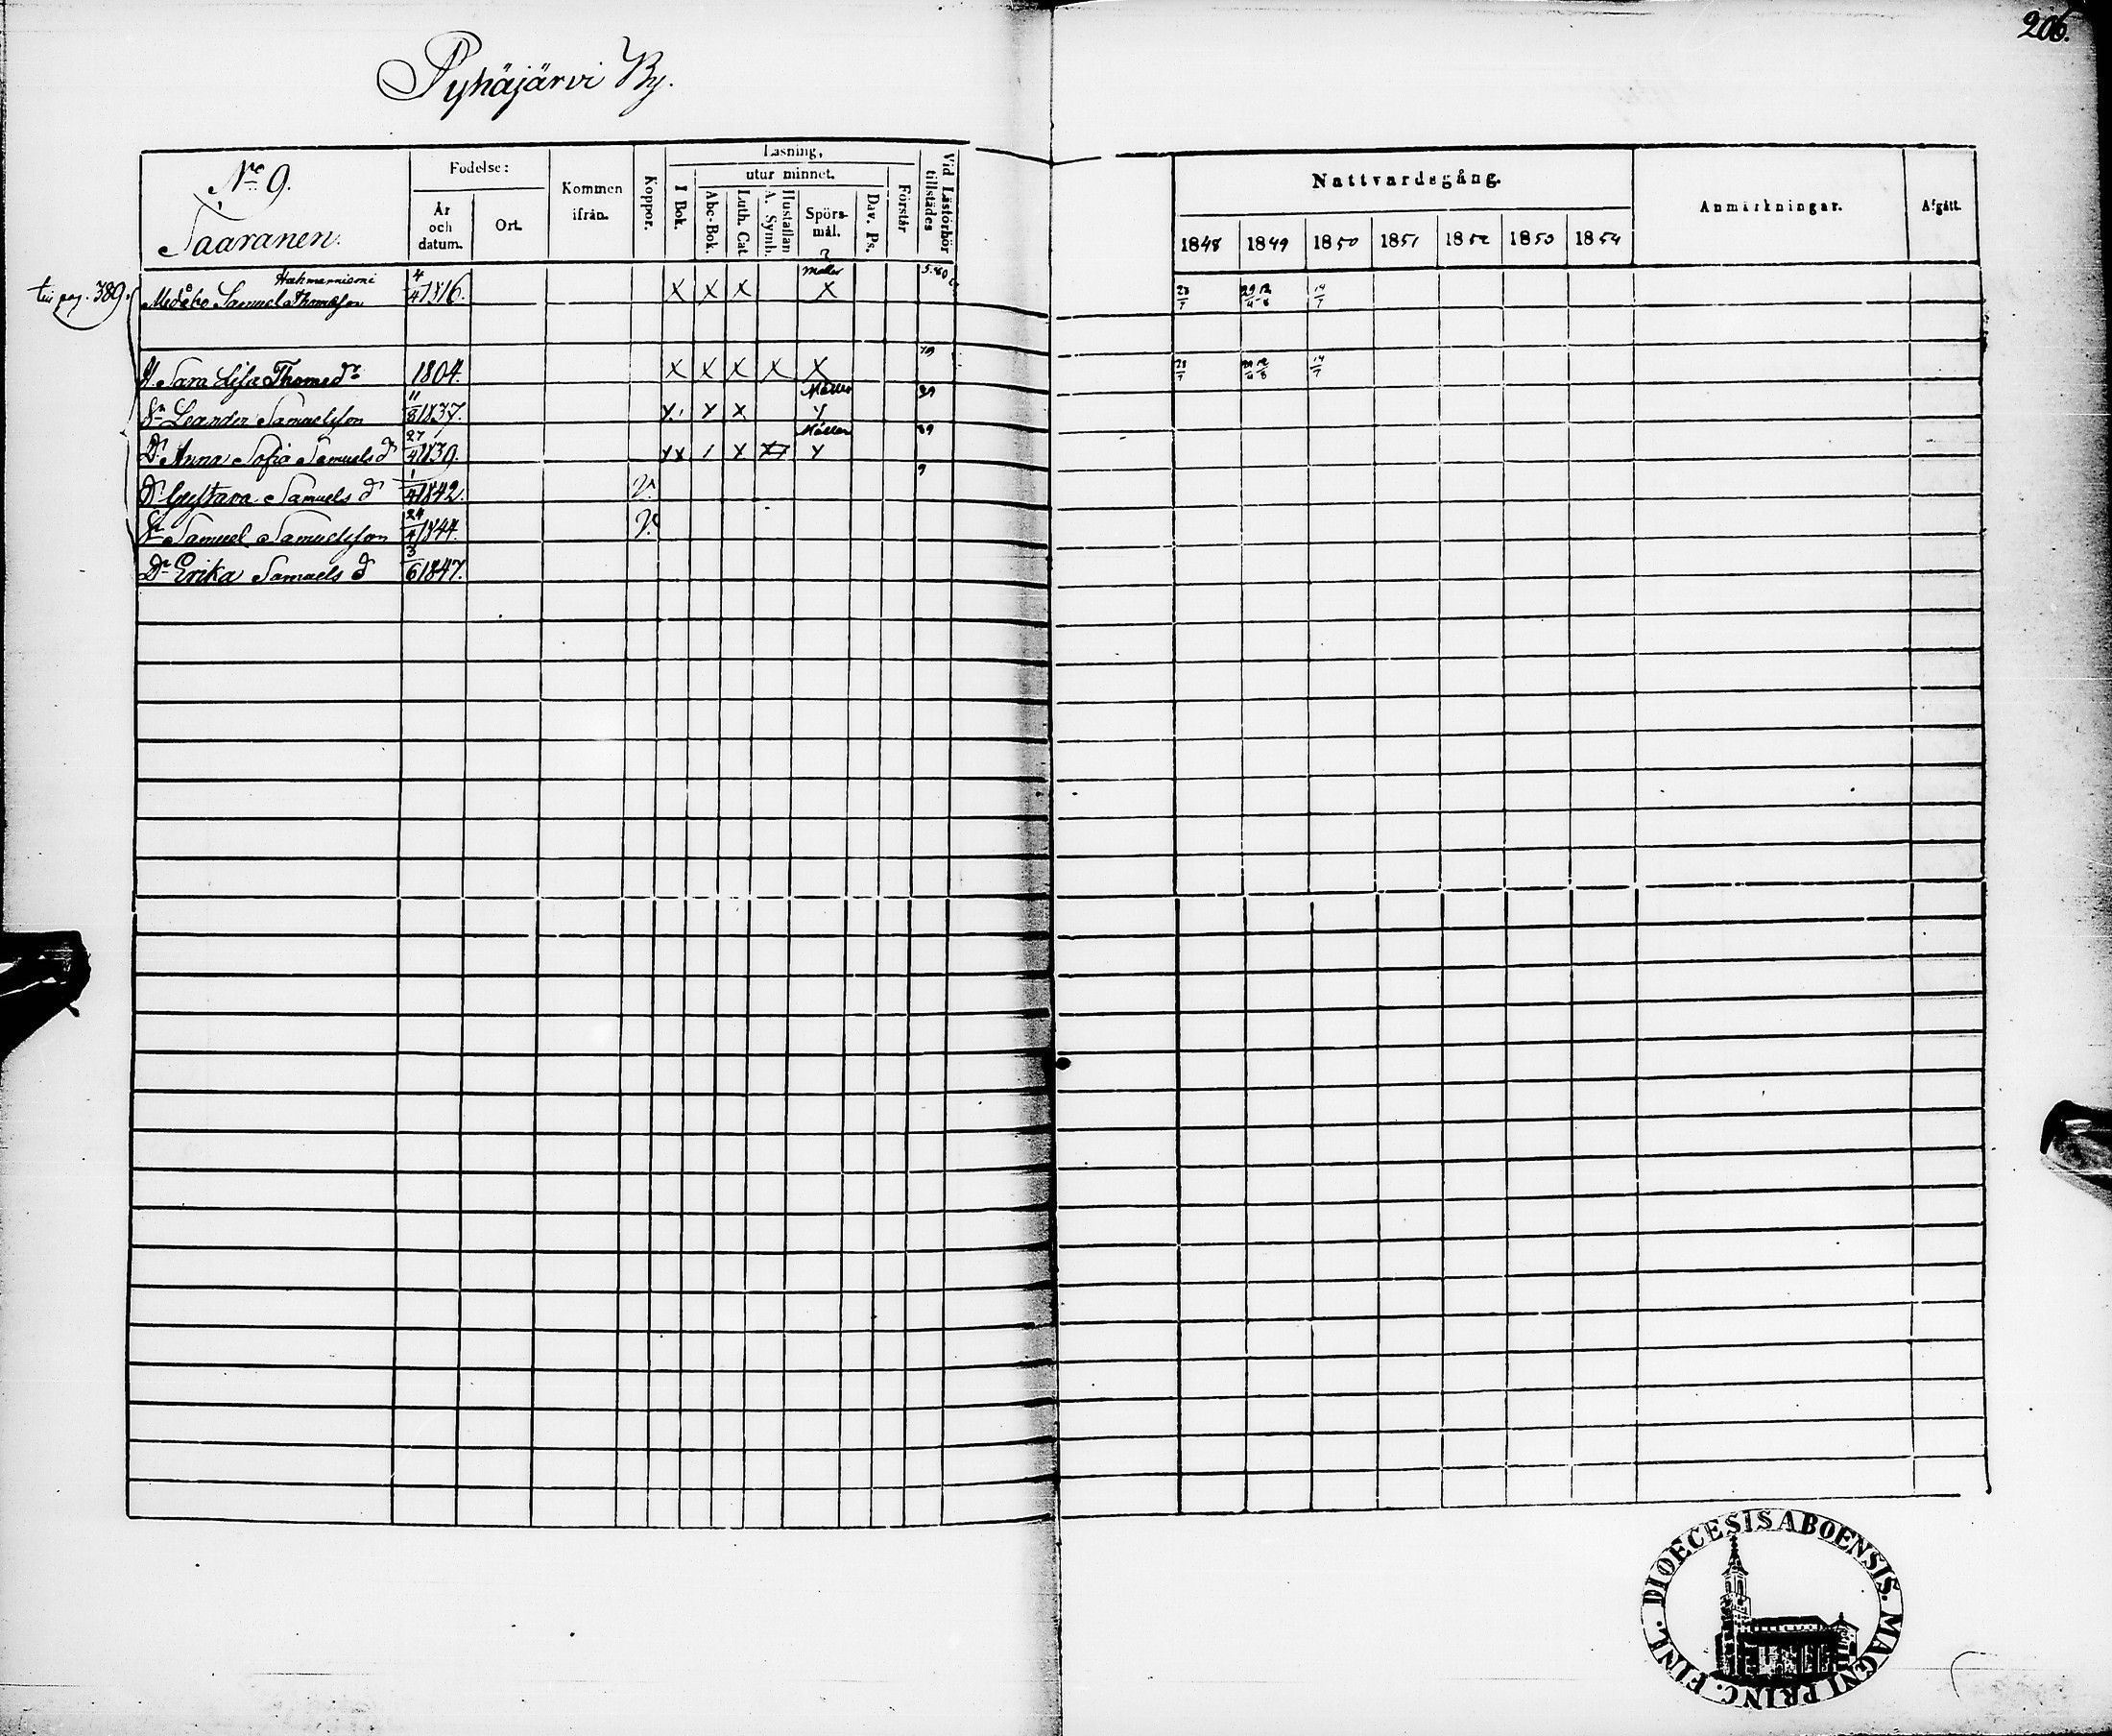 206.
Pyhäjärvi By.
No 9.
Saaranen.
Födelse:
År och datum.
Ort.
Kommen ifrån.
Koppor.
Läsning,
utur minnet.
I Bok.
Abc-Bok.
Luth. Cat.
Hustaflan A. Symb.
Spörsmål.
Dav. Ps.
Förstår
Vid Läsförhör tillstädes
Nattvardsgång.
1848 1849 1850 1851 1852 1853 1854
Anmärkningar.
Afgått.
till pag. 389.
Samuel Thomasson 4/4 1816. X X X Möller X 28/7 29/4 12/8 14/7
Sara Lisa Thomasdr 1804. X X X X X 28/7 29/4 12/8 14/7
Sn Leander Samuelsson 11/8 1837. Möller
Dr Anna Sofia Samuels dr 27/4 1839. Möller
Dr Gustava Samuels dr 1/4 1842. v.
Sn Samuel Samuelsson 24/4 1844. v.
Dr Erika Samuels dr 3/6 1847.
FINL. DIOECESIS ABOENSIS. MAGNI PRINC.